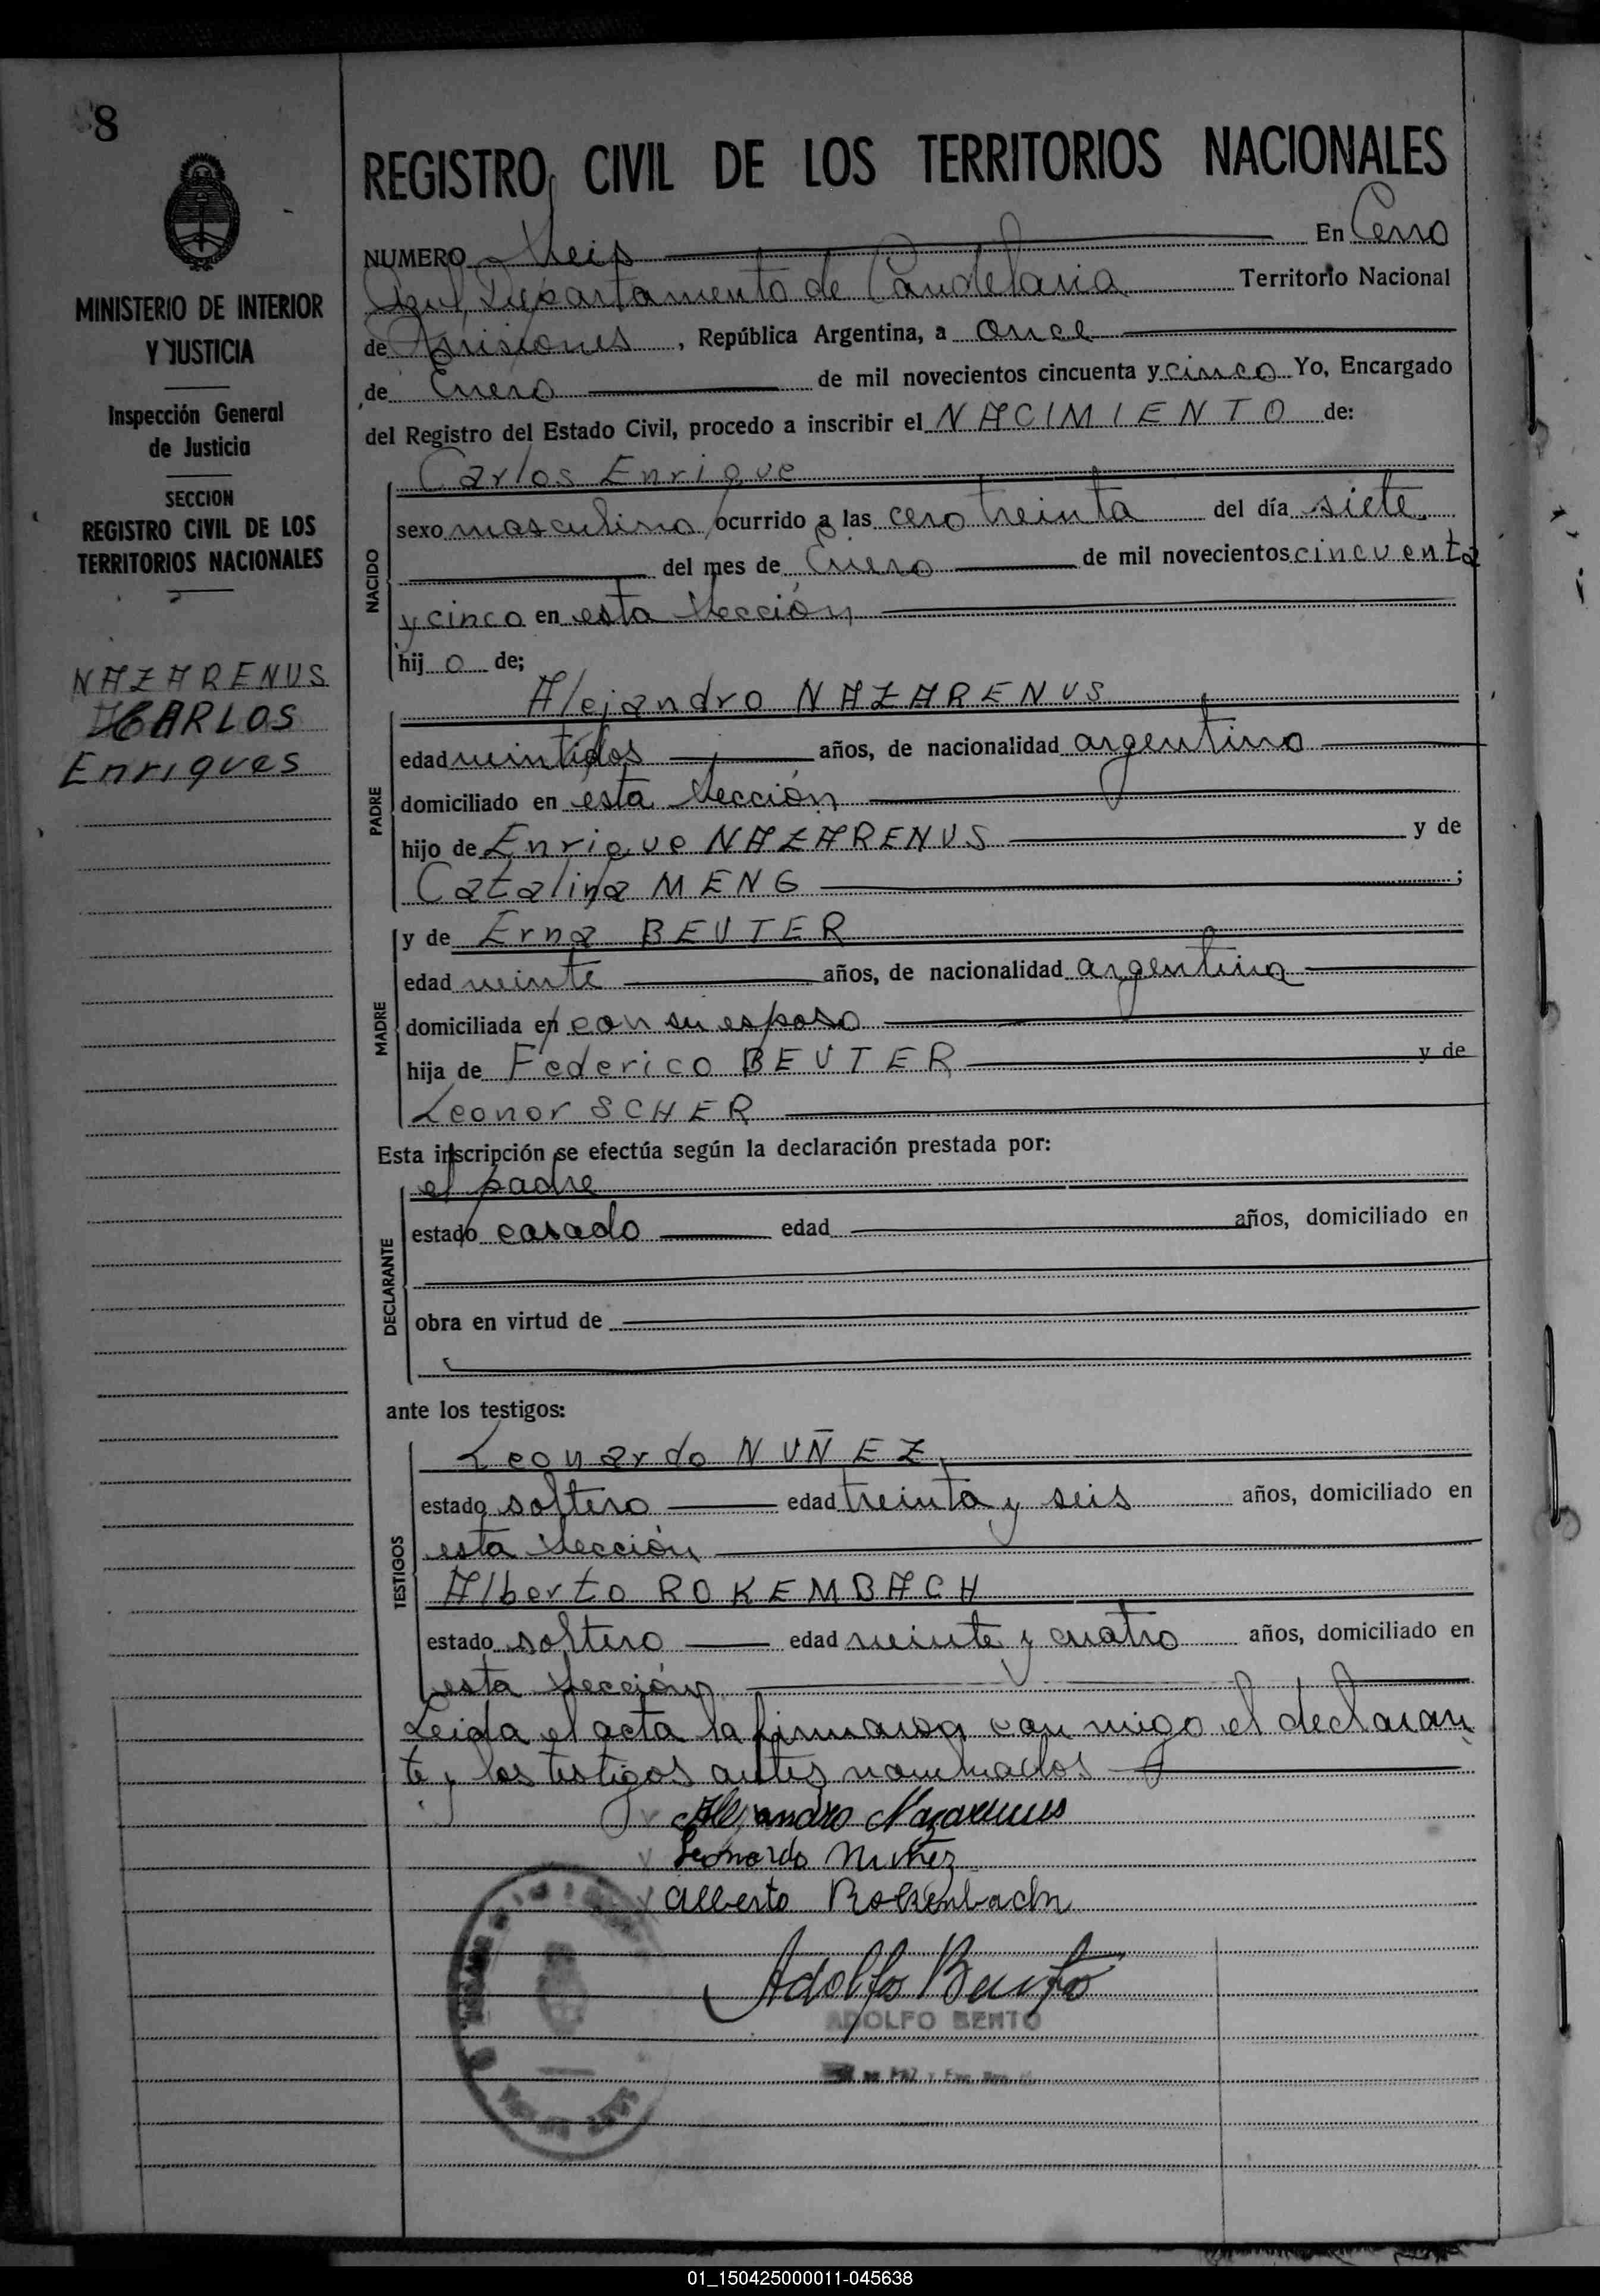 8
MINISTERIO DE INTERIOR
Y JUSTICIA
Inspección General
de Justicia
SECCION
REGISTRO CIVIL DE LOS
TERRITORIOS NACIONALES
NAZARENUS
CARLOS
Enriques
REGISTRO CIVIL DE LOS TERRITORIOS NACIONALES
NUMERO Seis En Cerro
Azul, Departamento de Candelaria Territorio Nacional
de Misiones, República Argentina, a once
de Enero de mil novecientos cincuenta y cinco Yo, Encargado
del Registro del Estado Civil, procedo a inscribir el NACIMIENTO de:
NACIDO
Carlos Enrique
sexo masculino ocurrido a las cero treinta del día siete
del mes de Enero de mil novecientos cincuenta
y cinco en esta Sección
hijo de;
PADRE
Alejandro NAZARENUS
edad veintidos años, de nacionalidad argentino
domiciliado en esta Sección
hijo de Enrique NAZARENUS y de
Catalina MENG ;
MADRE
y de Erna BEUTER
edad veinte años, de nacionalidad argentina
domiciliada en con su esposo
hija de Federico BEUTER y de
Leonor SCHER
Esta inscripción se efectúa según la declaración prestada por:
DECLARANTE
el padre
estado casado edad años, domiciliado en
obra en virtud de
ante los testigos:
TESTIGOS
Leonardo NUÑEZ
estado soltero edad treinta y seis años, domiciliado en
esta Sección
Alberto ROKEMBACH
estado soltero edad veinte y cuatro años, domiciliado en
esta Sección
Leida el acta la firmaron con migo el declaran
te y los testigos antes nombrados
Alejandro Nazarenus
Leonardo Nuñez
Alberto Rokenbach
Adolfo Bento
ADOLFO BENTO
01_150425000011-045638